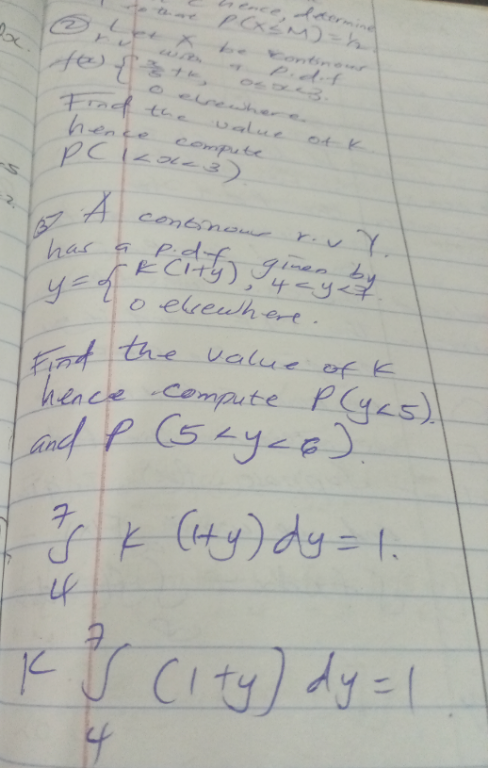 hence, determine
so that P(X≤M)=
② Let X be continous
r.v with a p.d.f
f(x) { x/6 + k, 0<x<3.
0 elsewhere.
Find the value of K
hence compute
P(1<x<3)
③ A continour r.v Y.
has a p.d.f given by
y = { K(1+y), 4<y<7.
0 elsewhere.
Find the value of K
hence compute P(y<5).
and P (5<y<6).
7
∫ K (1+y) dy = 1.
4
7
K ∫ (1+y) dy = 1
4